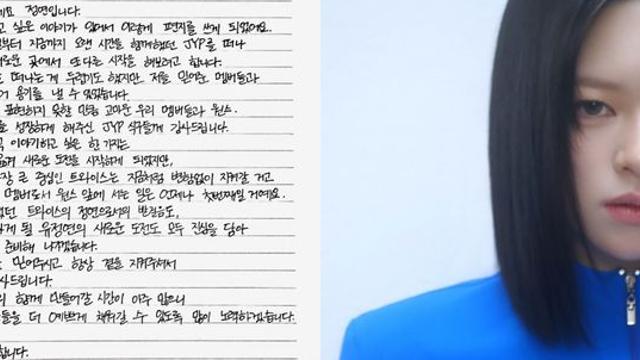 세요 정연입니다.
고 싶은 이야기가 있어서 이렇게 편지를 쓰게 되었어요.
부터 지금까지 오랜 시간을 함께했던 JYP를 떠나
새로운 곳에서 또 다른 시작을 해보려고 합니다.
떠나는 게 두렵기도 했지만 저를 믿어준 멤버들과
용기를 낼 수 있었습니다.
표현하지 못할 만큼 고마운 우리 멤버들과 원스.
성장하게 해주신 JYP 식구들께 감사드립니다.
이야기하고 싶은 한 가지는
새로운 도전을 시작하게 되었지만,
장 큰 중심인 트와이스는 지금처럼 변함없이 지켜갈 거고
멤버로서 원스 앞에 서는 일은 언제나 첫번째일 거예요.
트와이스의 정연으로서의 발걸음도,
게 될 유정연의 새로운 도전도 모두 진심을 담아
준비해 나가겠습니다.
믿어주시고 항상 곁을 지켜주셔서
사드립니다.
함께 만들어갈 시간이 아주 많으니
들을 더 예쁘게 채워갈 수 있도록 많이 노력하겠습니다.
합니다.